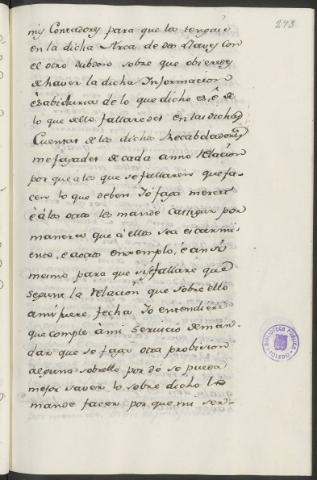 293
mis Contadores para que las tengais
en la dicha Arca de dos llaves con
el otro sobre que obieredes
de haver la dicha Informacion
è sabiduria de lo que dicho es, è de
lo que dello fallaredes en las dichas
Cuentas de los dichos Recabdadores
me fagades de cada anno relacion
por que a los que se fallaren que fa-
cen lo que deben Yo faga merced
è à los otros les mande castigar por
manera que à ellos sea escarmi-
ento, è à otros enxemplo, è
mesmo para que si fallare que
segunt la relacion que sobre ello
à mi fuere fecha, Yo entendiere
que comple à mi servicio deman-
dar que se faga otra probision
alguna sobrello por do se pueda
mejor saver lo sobre dicho lo
mande facer por que mi ser-
BIBLIOTECA PUBLICA
TOLEDO